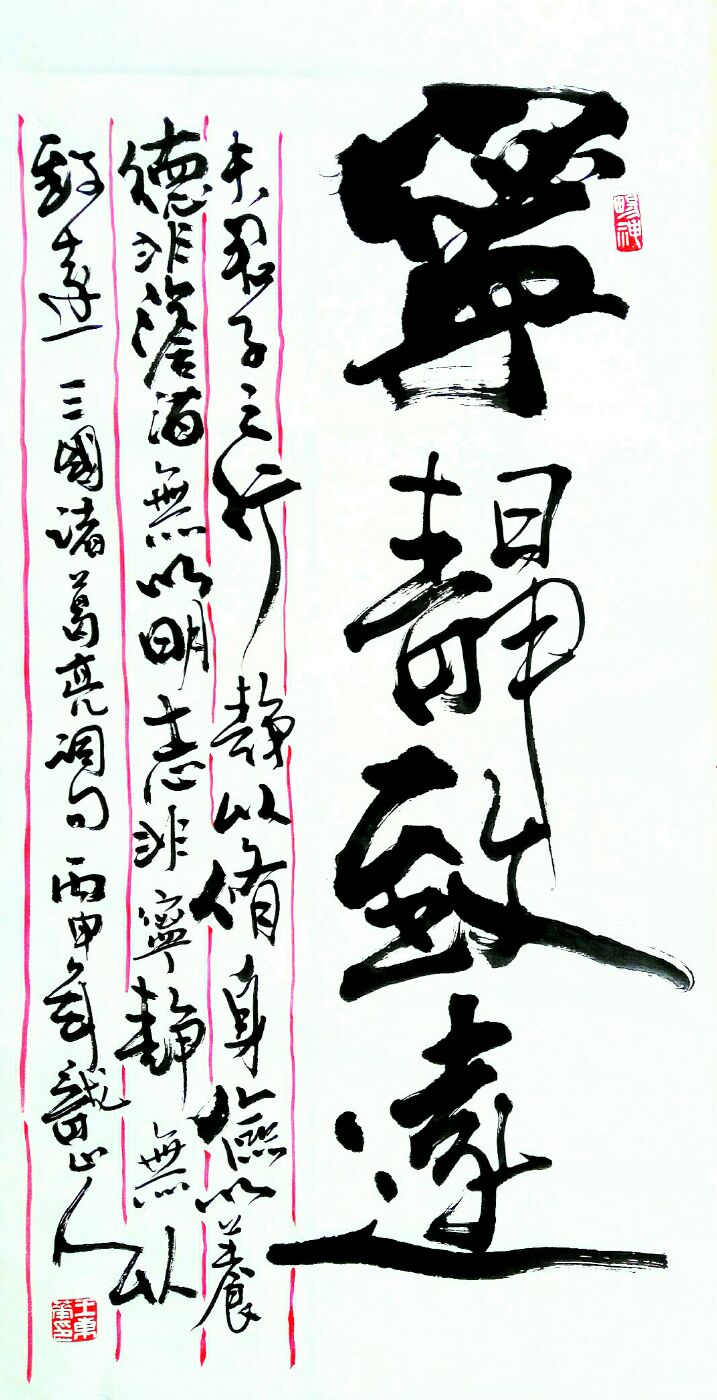 寧靜致遠
暢神
夫君子之行靜以脩身儉以養
德非澹泊無以明志非寧靜無以
致遠 三國諸葛亮詞句 丙申年山人